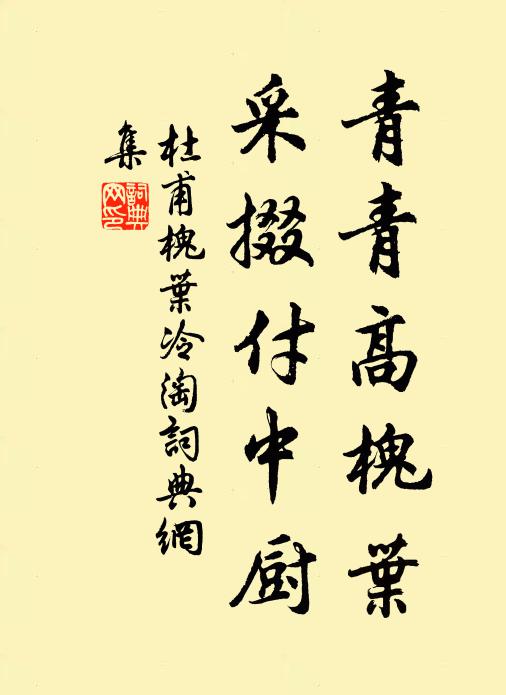 青青高槐葉
采掇付中厨
杜甫槐葉冷淘詞典網
集
詞典
网印